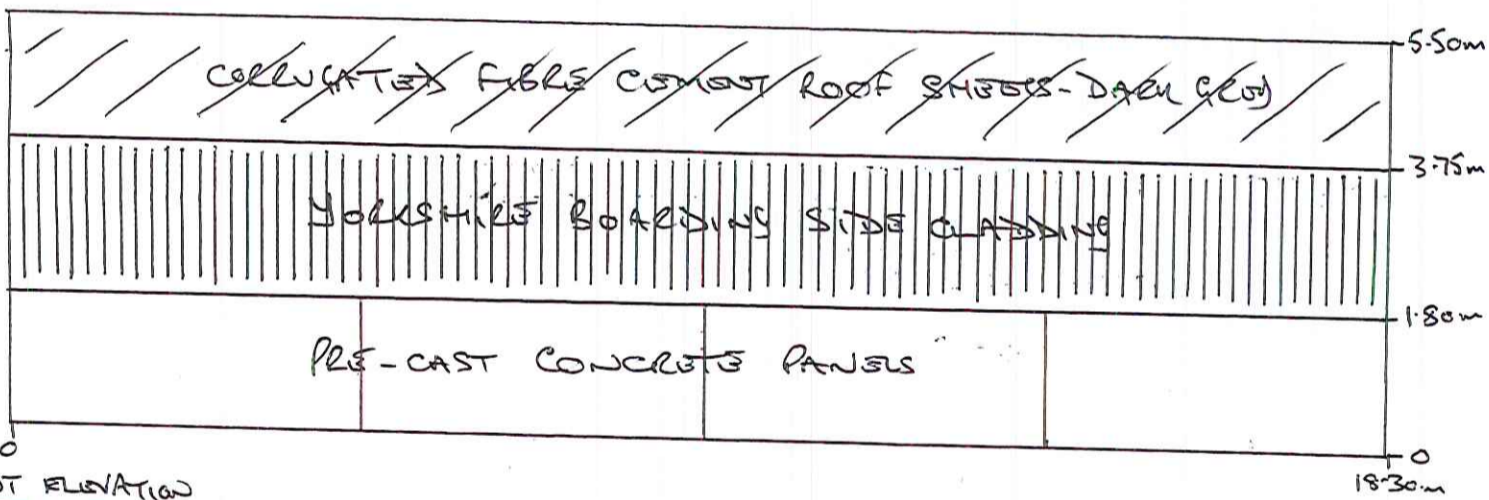 CORRUGATED FIBRE CEMENT ROOF SHEETS - DARK GREY
5.50m
3.75m
YORKSHIRE BOARDING SIDE CLADDING
1.80m
PRE-CAST CONCRETE PANELS
0
0
18.30m
ELEVATION